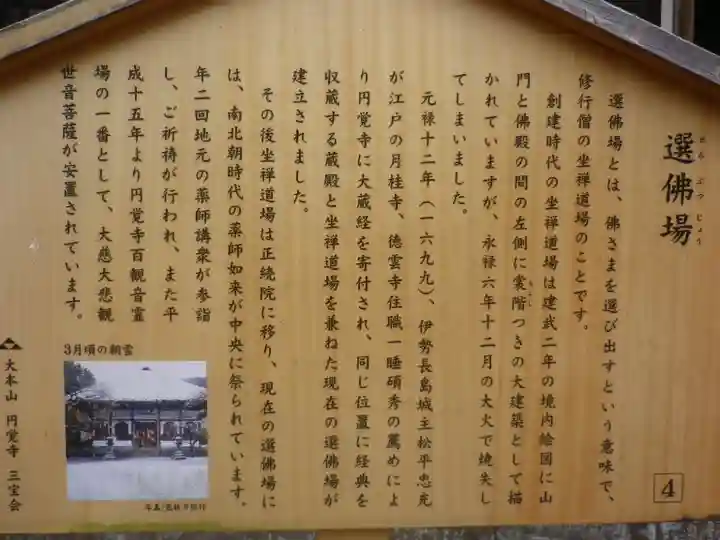 選佛場
せんぶつじょう
選佛場とは、佛さまを選び出すという意味で、
修行僧の坐禅道場のことです。
創建時代の坐禅道場は建武二年の境内絵図に山
門と佛殿の間の左側に裳階つきの大建築として描
もこし
かれていますが、永禄六年十二月の大火で焼失し
てしまいました。
元禄十二年（一六九九）、伊勢長島城主松平忠充
が江戸の月桂寺、徳雲寺住職一睡碩秀の薦めによ
り円覚寺に大蔵経を寄付され、同じ位置に経典を
収蔵する蔵殿と坐禅道場を兼ねた現在の選佛場が
建立されました。
その後坐禅道場は正続院に移り、現在の選佛場に
は、南北朝時代の薬師如来が中央に祭られています。
年二回地元の薬師講衆が参詣
し、ご祈祷が行われ、また平
成十五年より円覚寺百観音霊
場の一番として、大慈大悲観
世音菩薩が安置されています。
3月頃の朝雪
大本山 円覚寺 三宝会
4